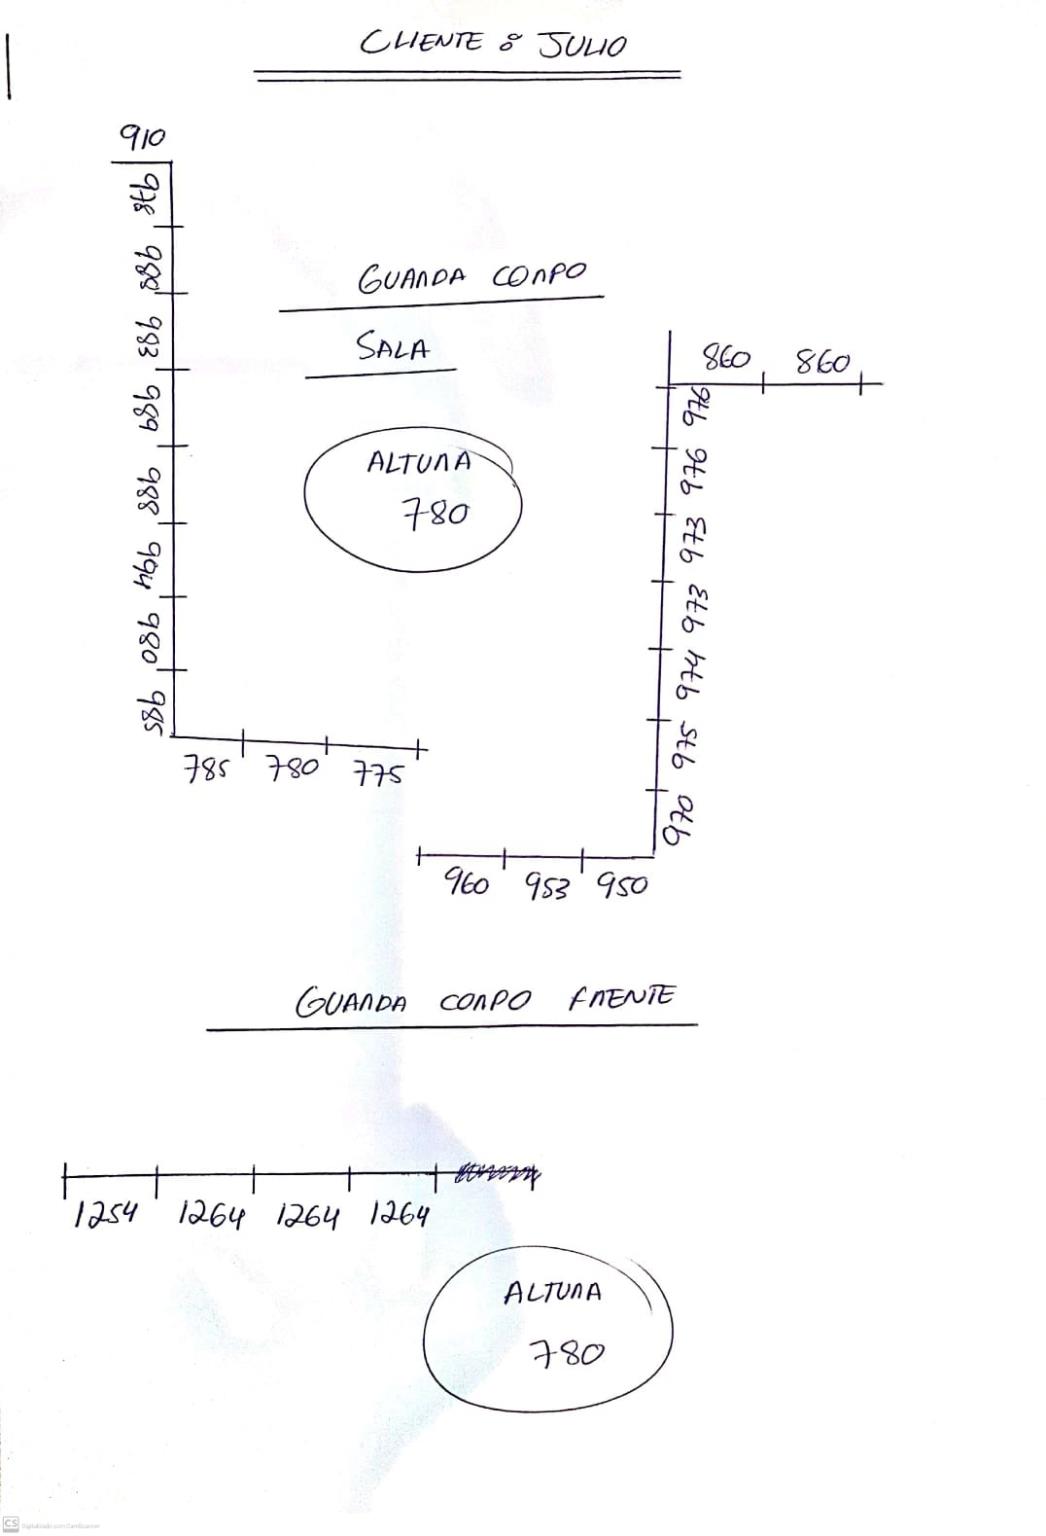 CLIENTE : JULIO
910
976
980
983
989
988
994
980
985
785 780 775
GUARDA CORPO
SALA
ALTURA
780
860 860
976
976
973
973
974
975
970
960 953 950
GUARDA CORPO FRENTE
1254 1264 1264 1264
ALTURA
780
CS Digitalizado com CamScanner